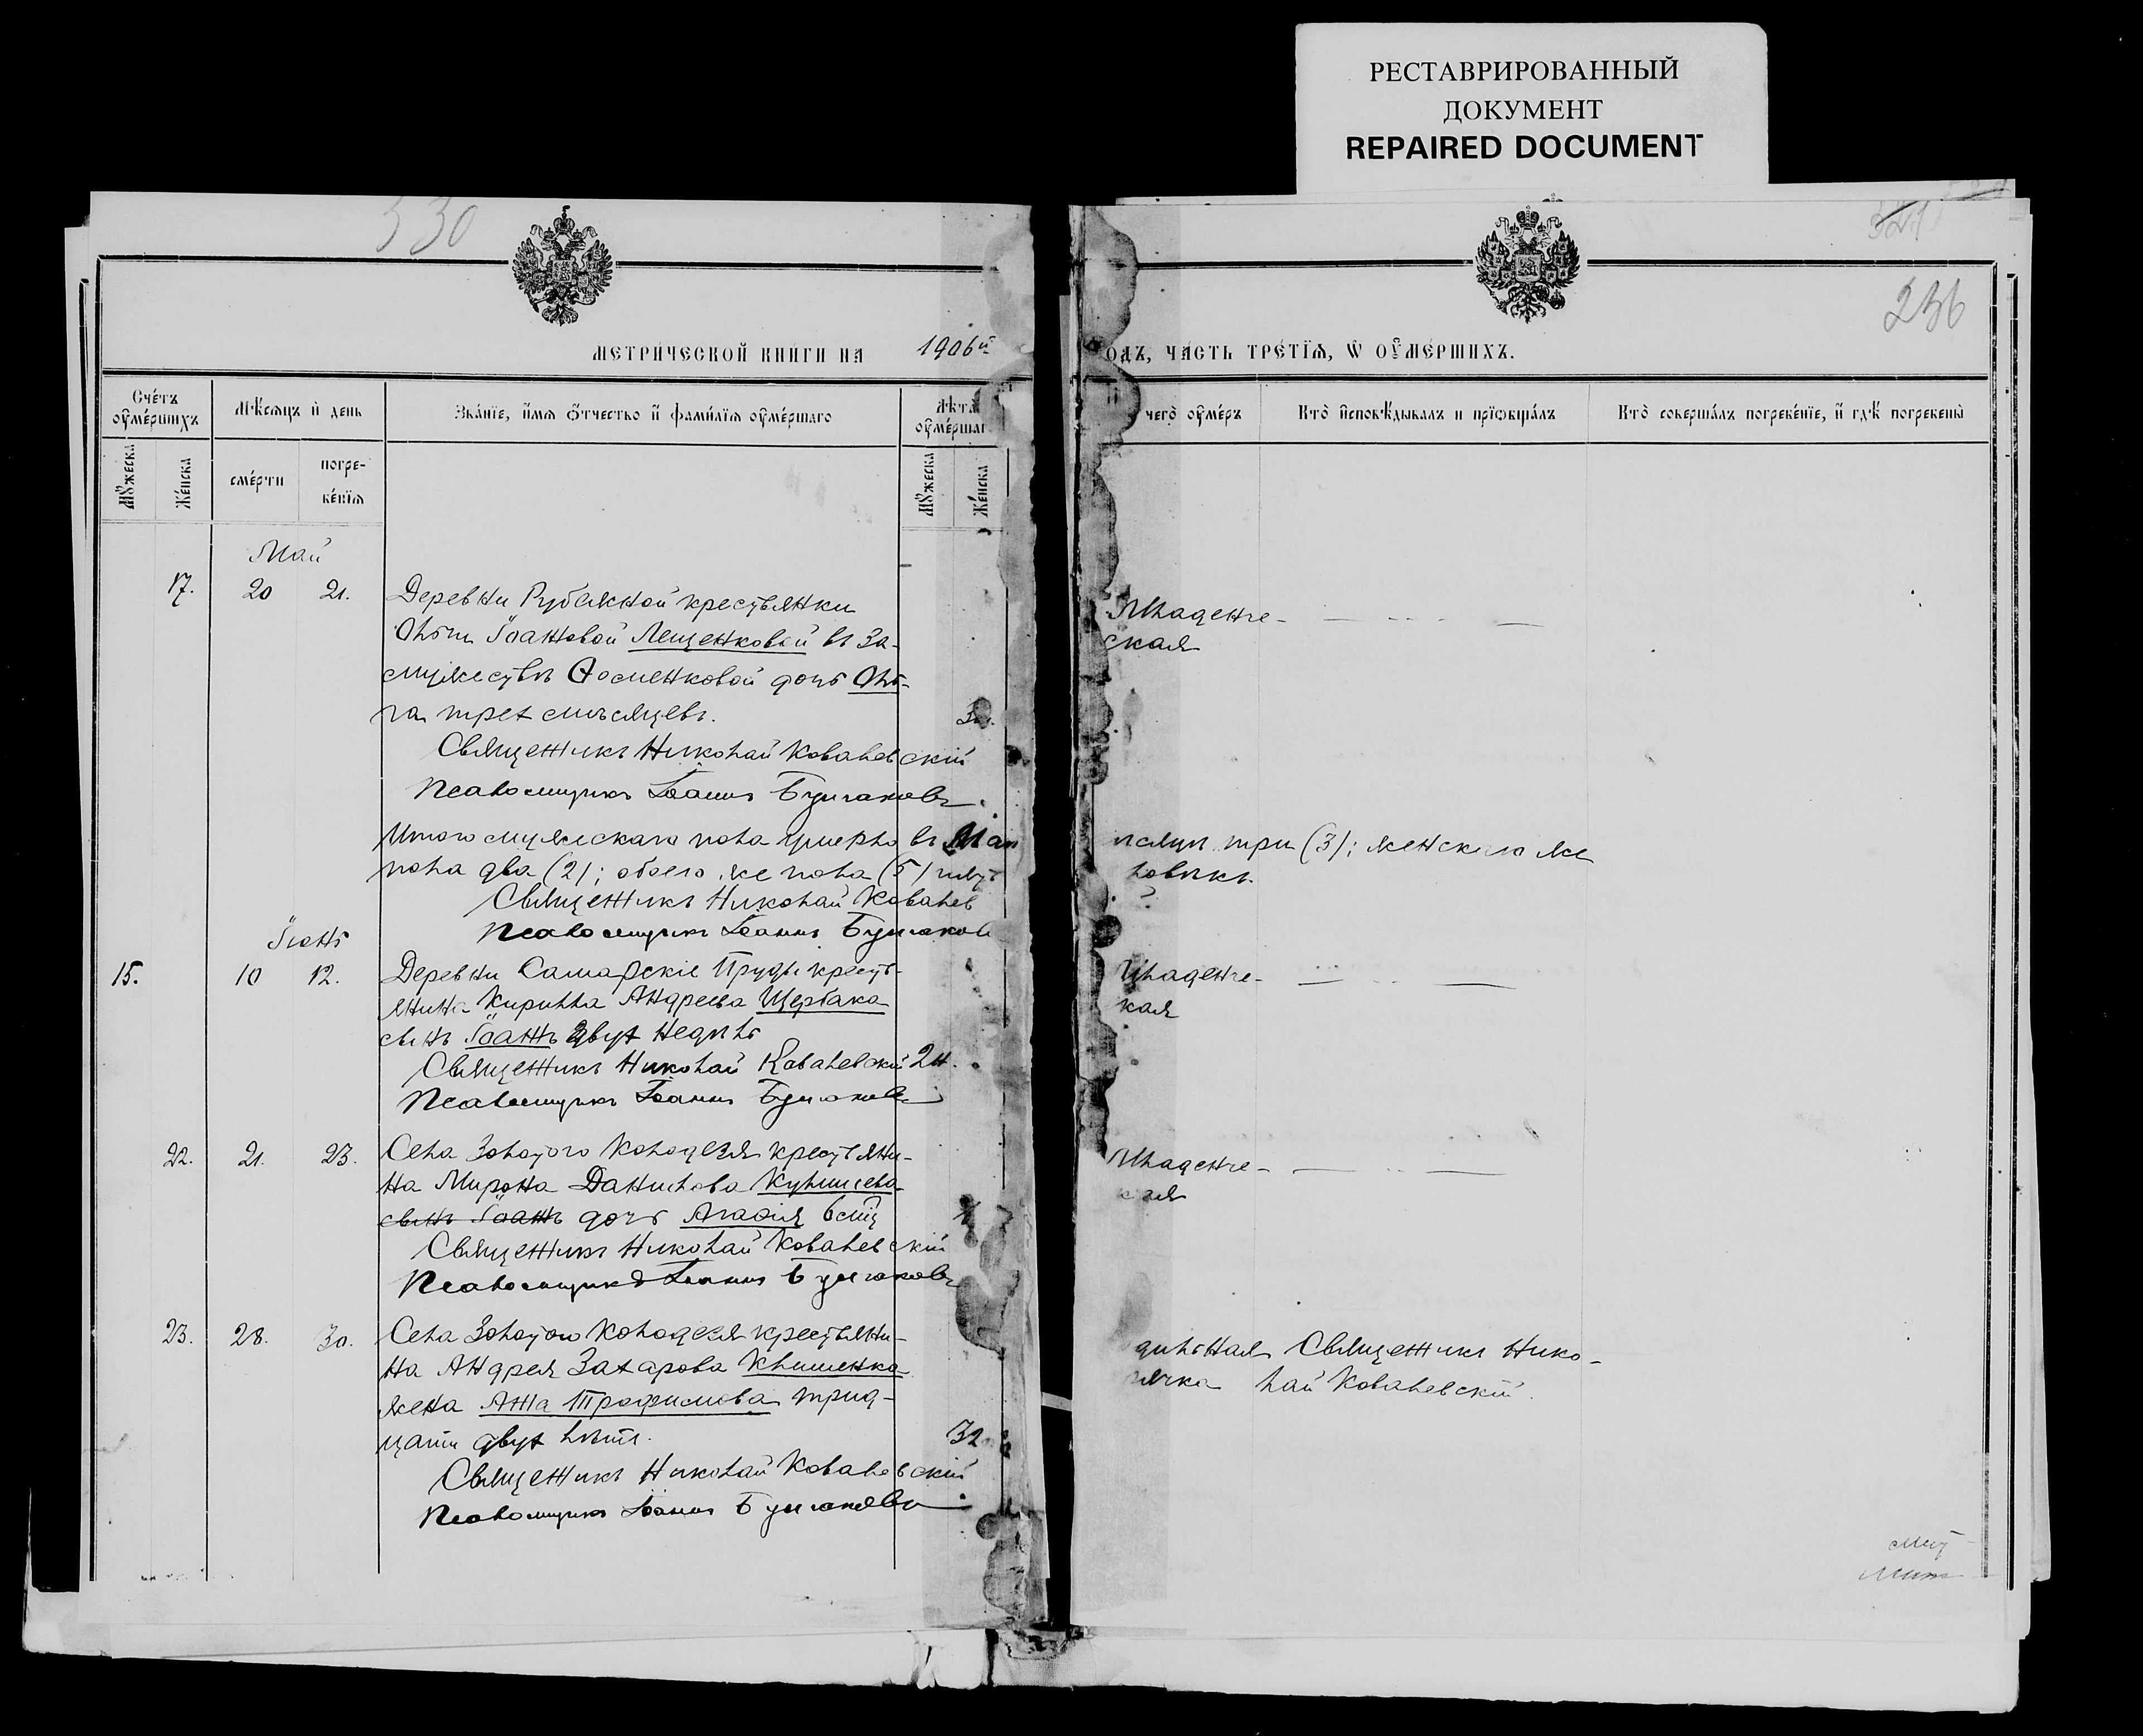 РЕСТАВРИРОВАННЫЙ
ДОКУМЕНТ
REPAIRED DOCUMENT
530
236
МЕТРИЧЕСКОЙ КНИГИ НА 1906й
ОДЪ, ЧАСТЬ ТРЕТІѦ, Ѿ ОУМЕРШИХЪ.
Счетъ оумершихъ
Мѣсяцъ и день
Званіе, имя отчество и фамилія оумершаго
Лѣта оумершаг
чего оумеръ
Кто исповѣдывалъ и пріобщалъ
Кто совершалъ погребеніе, и гдѣ погребены
Мужеска
Женска
смерти
погребенія
Мужеска
Женска
Май
17. 20 21. Деревни Рубежной крестьянки
Ольги Іоановой Лещенковой въ за-
мужествѣ Фоменковой дочь Оль-
га трех мѣсяцевъ. 3м.
Священникъ Николай Ковалевскій
Псаломщикъ Іоаннъ Булгаковъ.
Младенче-
ская
Итого мужескаго пола умерло въ Маѣ
пола два (2); обоего же пола (5)
Священникъ Николай Ковалев
Псаломщикъ Іоаннъ Булгаков
мѣсяцѣ три (3); женскаго же
ловѣкъ.
Іюнь
15. 10 12. Деревни Самарскіе Пруды кресть-
янина Кирилла Андреева Щербака
сынъ Іоанъ двух недѣль
Священникъ Николай Ковалевскій 2н.
Псаломщикъ Іоаннъ Булгаковъ
Младенче-
кая
22. 21. 23. Села Золотого Колодезя крестьяни-
на Мирона Данилова
сынъ Іоанъ дочь Агафія 6 мѣц
Священникъ Николай Ковалевскій
Псаломщикъ Іоаннъ Булгаковъ
Младенче-
кая
23. 28. 30. Села Золотого Колодезя крестьяни-
на Андрея Захарова Клименка
жена Анна Трофимова трид-
цати двух лѣтъ. 32
Священникъ Николай Ковалевскій
Псаломщикъ Іоаннъ Булгаковъ
дильная Священникъ Нико-
рячка лай Ковалевскій.